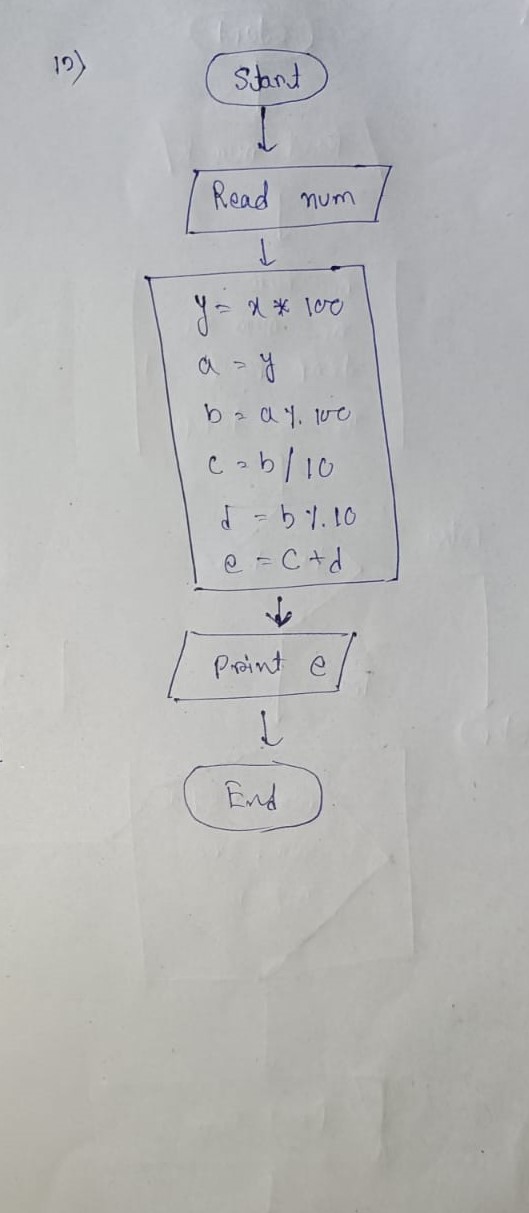 19)
Start
Read num
y = x * 100
a = y
b = a % 100
c = b / 10
d = b % 10
e = c + d
Print e
End